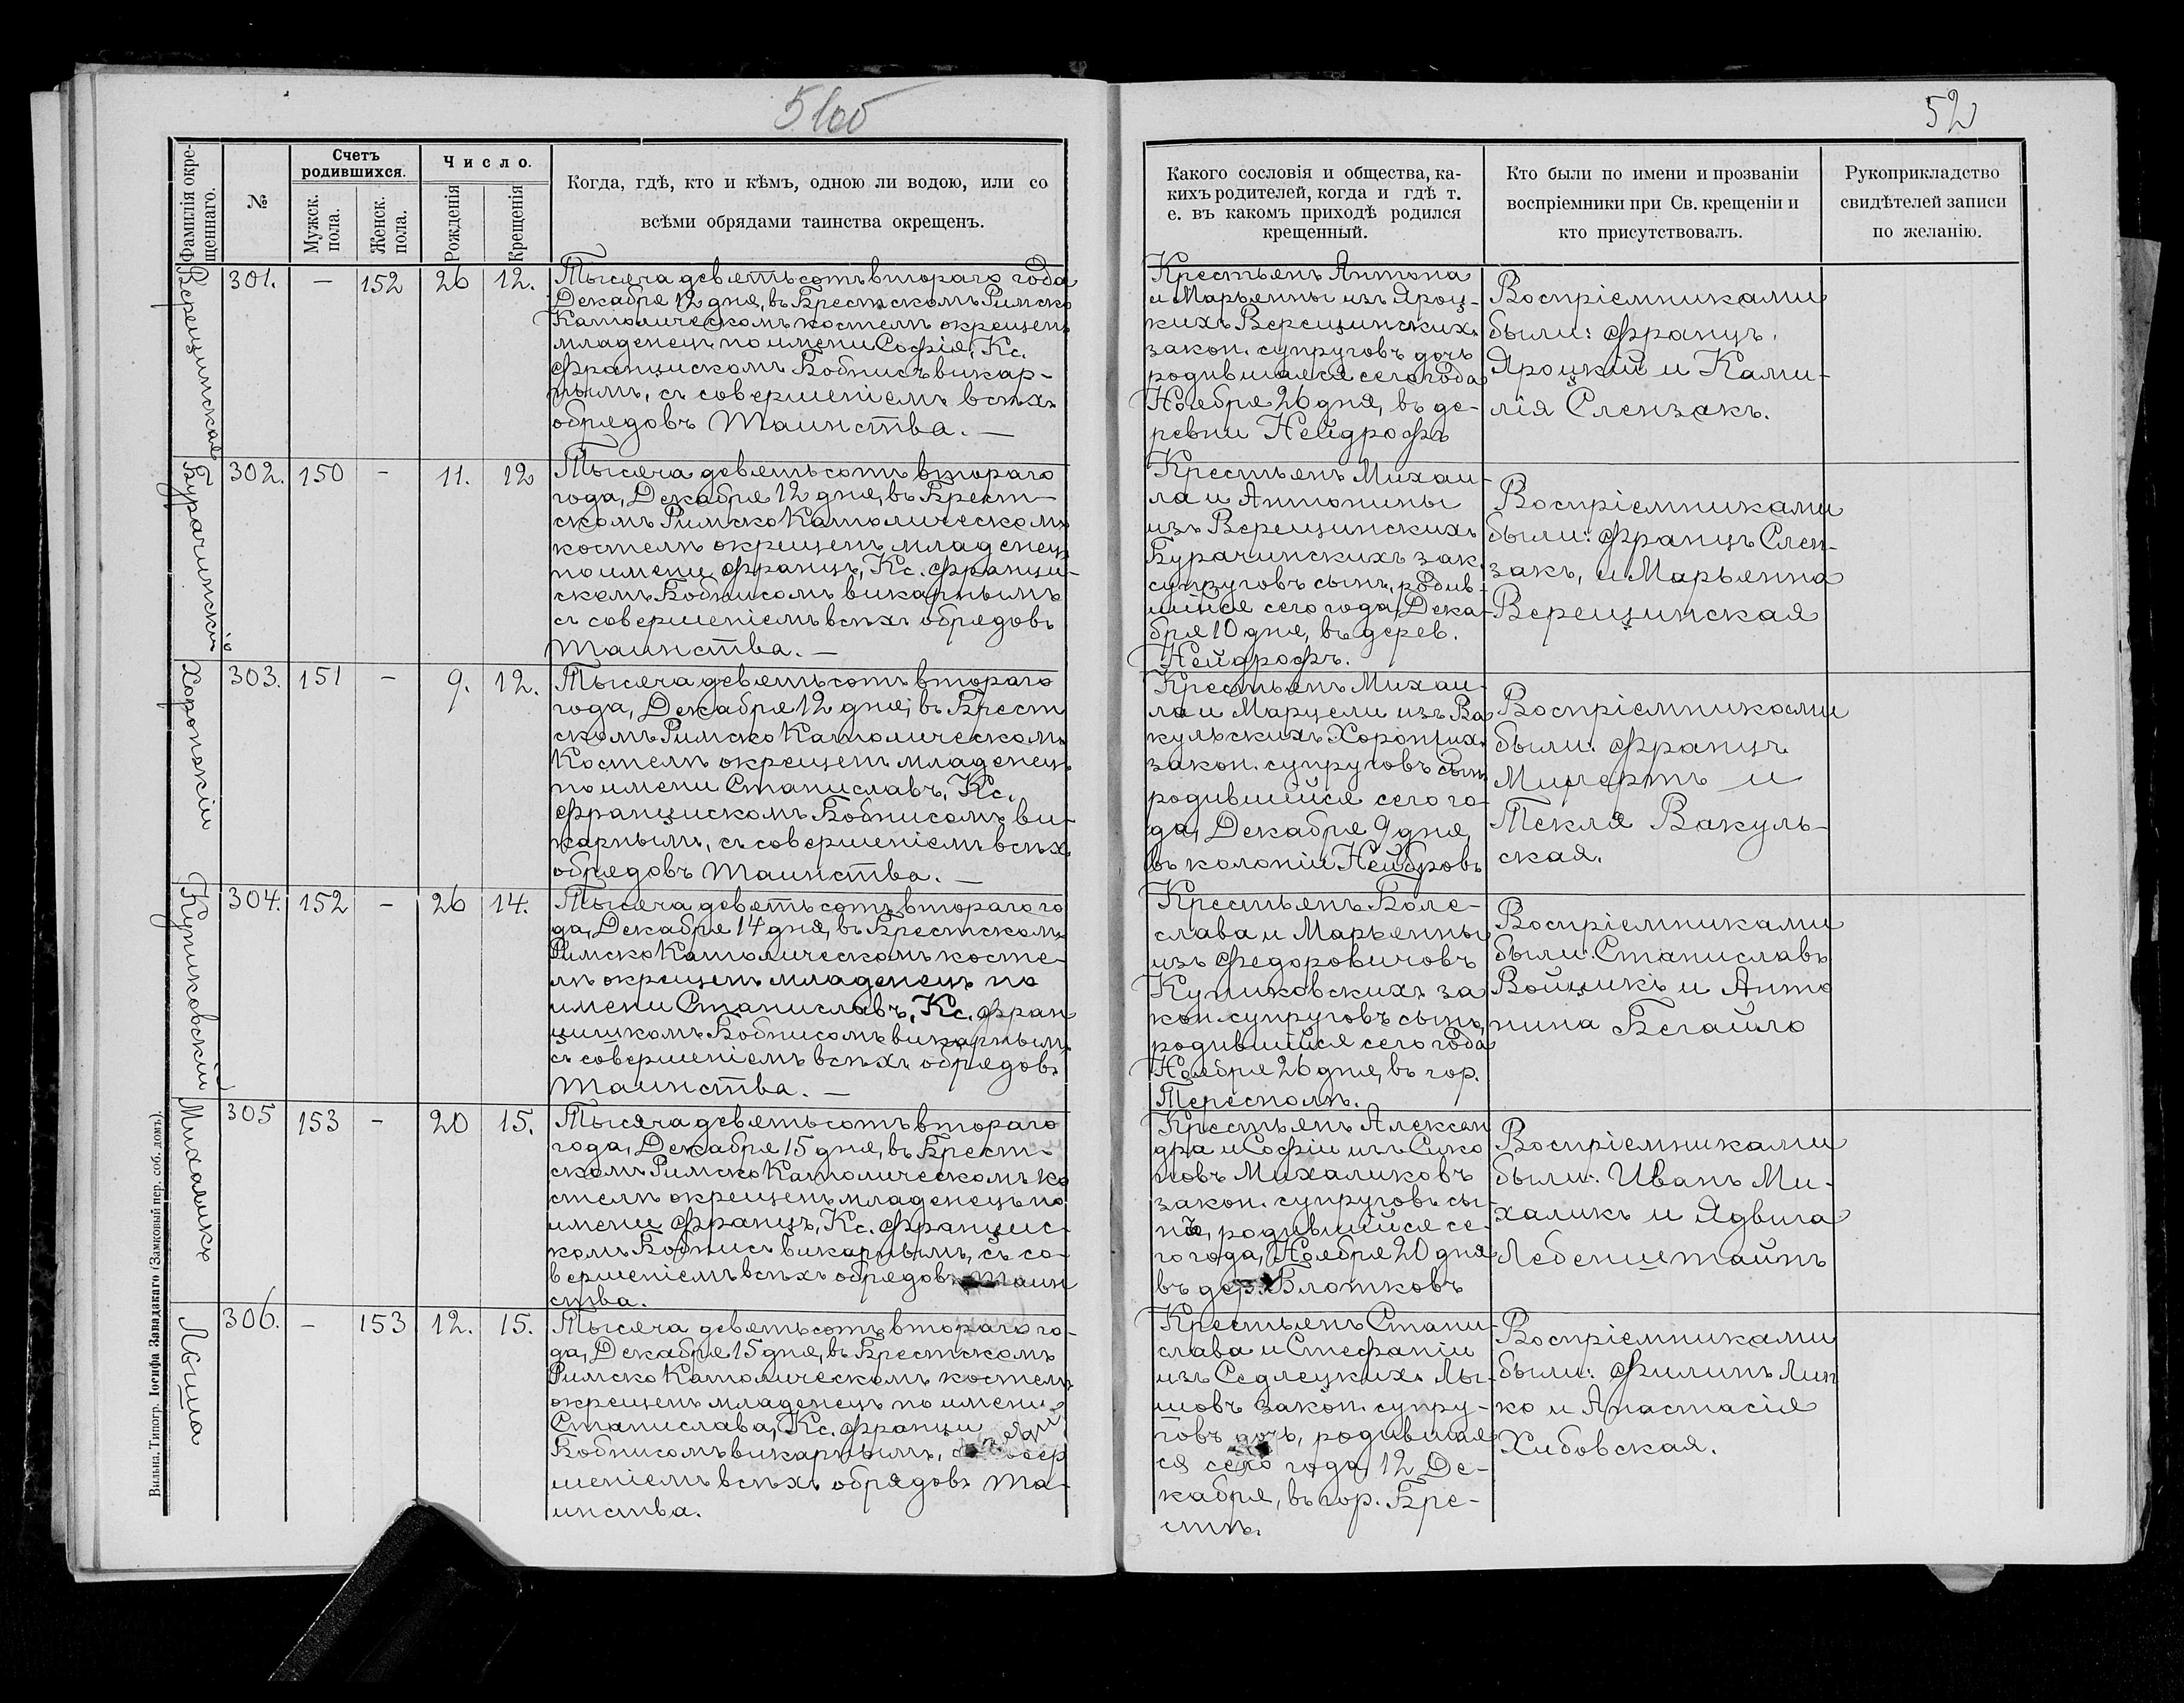 51об
52
Фамилія окре-
щеннаго.
№
Счетъ
родившихся.
Мужск.
пола.
Женск.
пола.
Число.
Рожденія
Крещенія
Когда, гдѣ, кто и кѣмъ, одною ли водою, или со
всѣми обрядами таинства окрещенъ.
Какого сословія и общества, ка-
кихъ родителей, когда и гдѣ т.
е. въ какомъ приходѣ родился
крещенный.
Кто были по имени и прозванію
воспріемники при Св. крещеніи и
кто присутствовалъ.
Рукоприкладство
свидѣтелей записи
по желанію.
Верещинская
301. — 152 26 12.
Тысяча девятьсотъ втораго года
Декабря 12 дня, въ Брестскомъ Римско
Католическомъ костелѣ окрещенъ
младенецъ по имени Софія, Кс.
Францискомъ Бобнисъ викар-
нымъ, съ совершеніемъ всѣхъ
обрядовъ Таинства. —
Крестьянъ Антона
и Марьянны изъ Яроц-
кихъ Верещинскихъ
закон. супруговъ дочь
родившаяся сего года
Ноября 26 дня, въ де-
ревни Нейдрофъ
Воспріемниками
были: Францъ
Яроцкій и Ками-
лія Слензакъ.
Бурачинскій
302. 150 - 11. 12
Тысяча девятьсотъ втораго
года, Декабря 12 дня, въ Брест-
скомъ Римско Католическомъ
костелѣ окрещенъ младенецъ
по имени Францъ, Кс. Франци-
скомъ Бобнисомъ викарнымъ
съ совершеніемъ всѣхъ обрядовъ
Таинства. —
Крестьянъ Михаи-
ла и Антонины
изъ Верещинскихъ
Бурачинскихъ зак.
супруговъ сынъ, родив-
шійся сего года, Дека-
бря 10 дня, въ дерев.
Нейдрофъ.
Воспріемниками
были: Францъ Слен-
закъ, и Марьянна
Верещинская
Хоронжій
303. 151 - 9. 12.
Тысяча девятьсотъ втораго
года, Декабря 12 дня, въ Брест
скомъ Римско Католическомъ
Костелѣ окрещенъ младенецъ
по имени Станиславъ, Кс.
Францискомъ Бобнисомъ ви-
карнымъ, съ совершеніемъ всѣхъ
обрядовъ Таинства. —
Крестьянъ Михаи-
ла и Марцели изъ Ва
кульскихъ Хоронжихъ
закон. супруговъ сынъ
родившійся сего го-
да, Декабря 9 дня,
въ колоніи Нейбровъ
Воспріемниками
были: Францъ
и
Текля Вакуль-
ская.
Купиковскій
304. 152 - 26 14.
Тысяча девятьсотъ втораго го
да, Декабря 14 дня, въ Брестскомъ
Римско Католическомъ косте-
лѣ окрещенъ младенецъ по
имени Станиславъ, Кс. Фран
цишкомъ Бобнисомъ викарнымъ
съ совершеніемъ всѣхъ обрядовъ
Таинства. —
Крестьянъ Боле-
слава и Марьянны
изъ Федоровичовъ
Купиковскихъ за
кон. супруговъ сынъ,
родившійся сего года
Ноября 26 дня, въ гор.
Тересполѣ.
Воспріемниками
были: Станиславъ
Войцикъ и Анто
нина Бегайло
Михаликъ
305 153 - 20 15.
Тысяча девятьсотъ втораго
года, Декабря 15 дня, въ Брест-
скомъ Римско Католическомъ ко
стелѣ окрещенъ младенецъ по
имени Францъ, Кс. Францис-
комъ Бобнисъ викарнымъ, съ со-
вершеніемъ всѣхъ обрядовъ Таин
ства.
Крестьянъ Алексан
дра и Софіи изъ Сико
Михаликовъ
закон. супруговъ сы-
нъ, родившійся се-
го года, Ноября 20 дня
въ дер. Блотковъ
Воспріемниками
были: Иванъ Ми-
халикъ и Ядвига
Лебенштайнъ
Лыша
306. - 153 12. 15.
Тысяча девятьсотъ втораго го-
да, Декабря 15 дня, въ Брестскомъ
Римско Католическомъ костелѣ
окрещенъ младенецъ по имени
Станислава, Кс. Франци
Бобнисомъ викарнымъ, совер
шеніемъ всѣхъ обрядовъ Та-
инства.
Крестьянъ Стани-
слава и Стефаніи
изъ Седлецкихъ Лы-
шовъ закон. супру-
говъ дочь, родившая
ся сего года, 12 Де-
кабря, въ гор. Бре-
стѣ.
Воспріемниками
были: Филипъ Лип
ко и Анастасія
Хибовская.
Вильна. Типогр. Іосифа Завадзкаго (Замковый пер. соб. домъ).